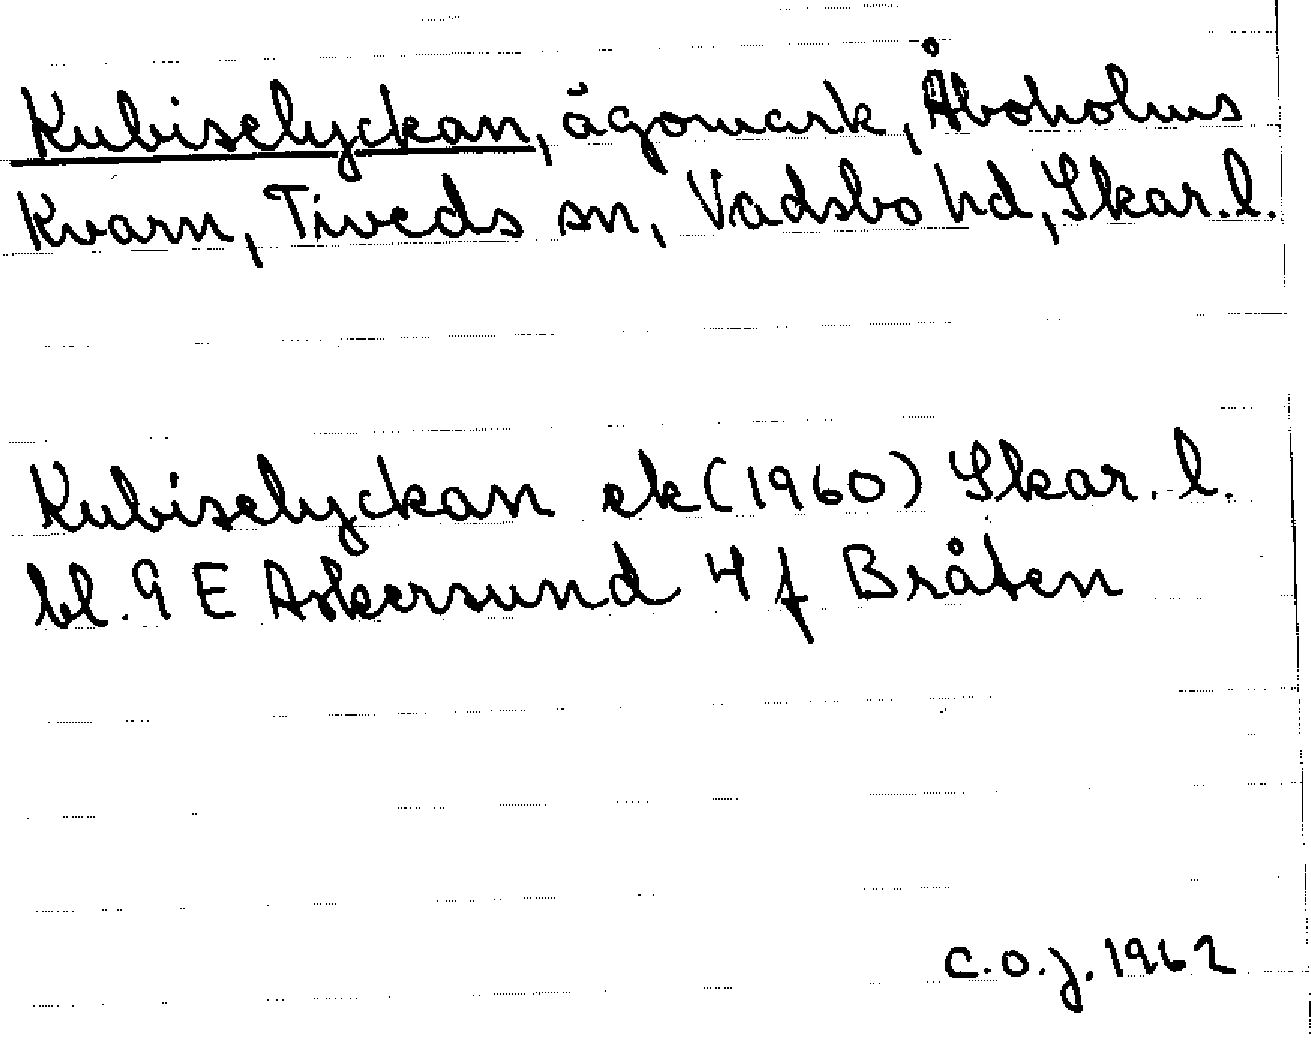 Kubiselyckan, ägomark, Åboholms
Kvarn, Tiveds sn, Vadsbo hd, Skar. l.
Kubiselyckan ek (1960) Skar. l.
bl. 9 E Askersund 4 f Bråten
C.O.J. 1962